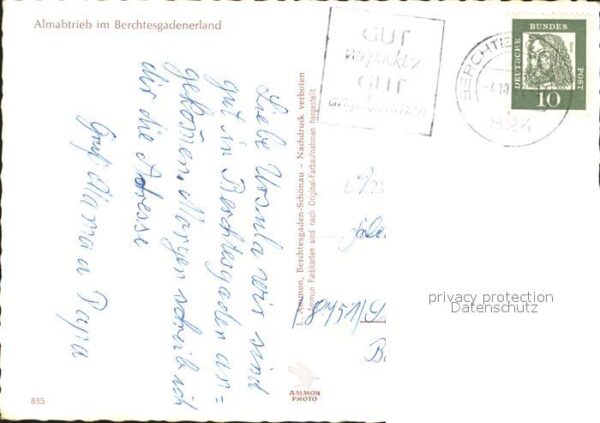 Almabtrieb im Berchtesgadenerland
GUT
verpackt
GUT
angekommen
BERCHTES
824
DEUTSCHE BUNDES POST
10
Liebe Ursula wir sind
gut in Berchtesgaden an=
gekommen. Morgen schreib ich
dir die Adresse
Gruß Mama u Papa
L. Ammon, Berchtesgaden-Schönau - Nachdruck verboten
Ammon Farbkarten sind nach Original-Farbaufnahmen hergestellt
8751
privacy protection
Datenschutz
AMMON
PHOTO
885